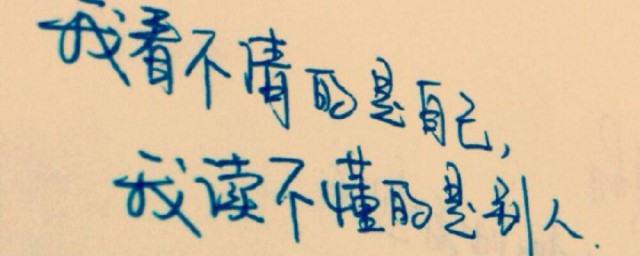 我看不清的是自己,
我读不懂的是别人.